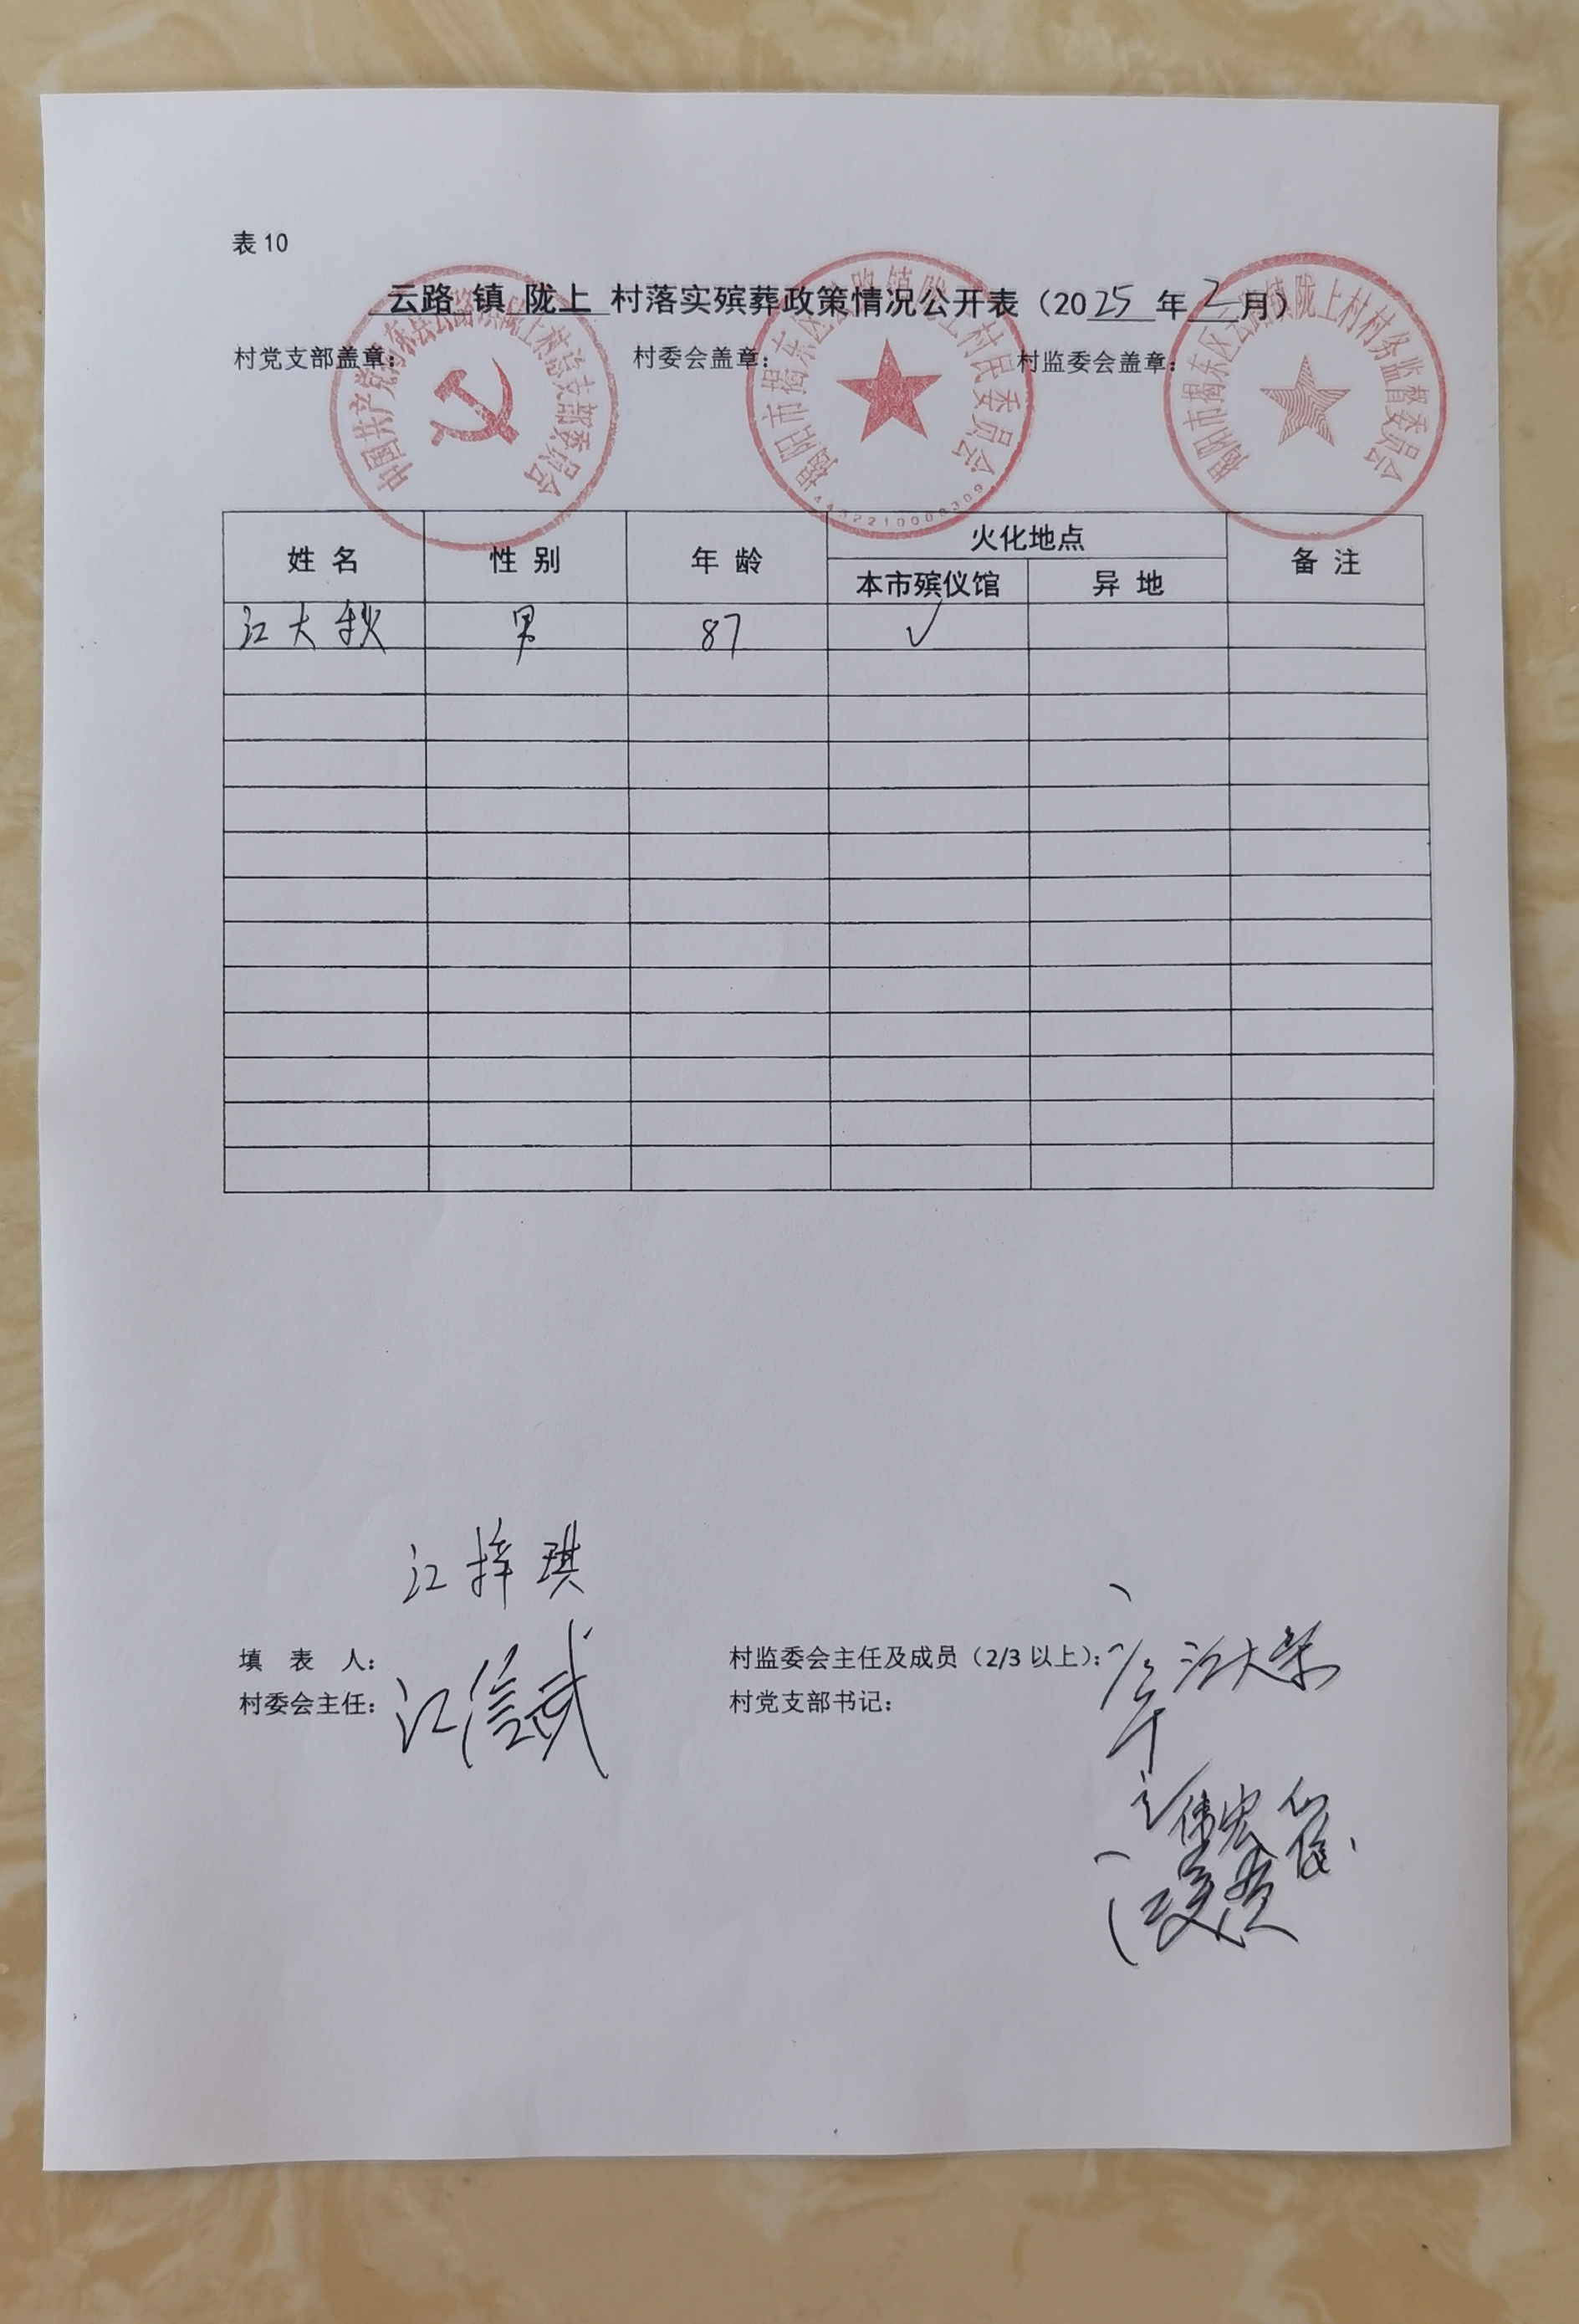 表 10
云路 镇 陇上 村落实殡葬政策情况公开表（2025 年 2 月）
村党支部盖章： 村委会盖章： 村监委会盖章：
揭阳市揭东区云路镇陇上村民委员会
揭阳市揭东区云路镇陇上村村务监督委员会
姓 名 性 别 年 龄 火化地点 备 注
本市殡仪馆 异 地
江大秋 男 87 ✓
江梓琪
填 表 人： 村监委会主任及成员（2/3 以上）： 江大荣
村委会主任： 江信武 村党支部书记：